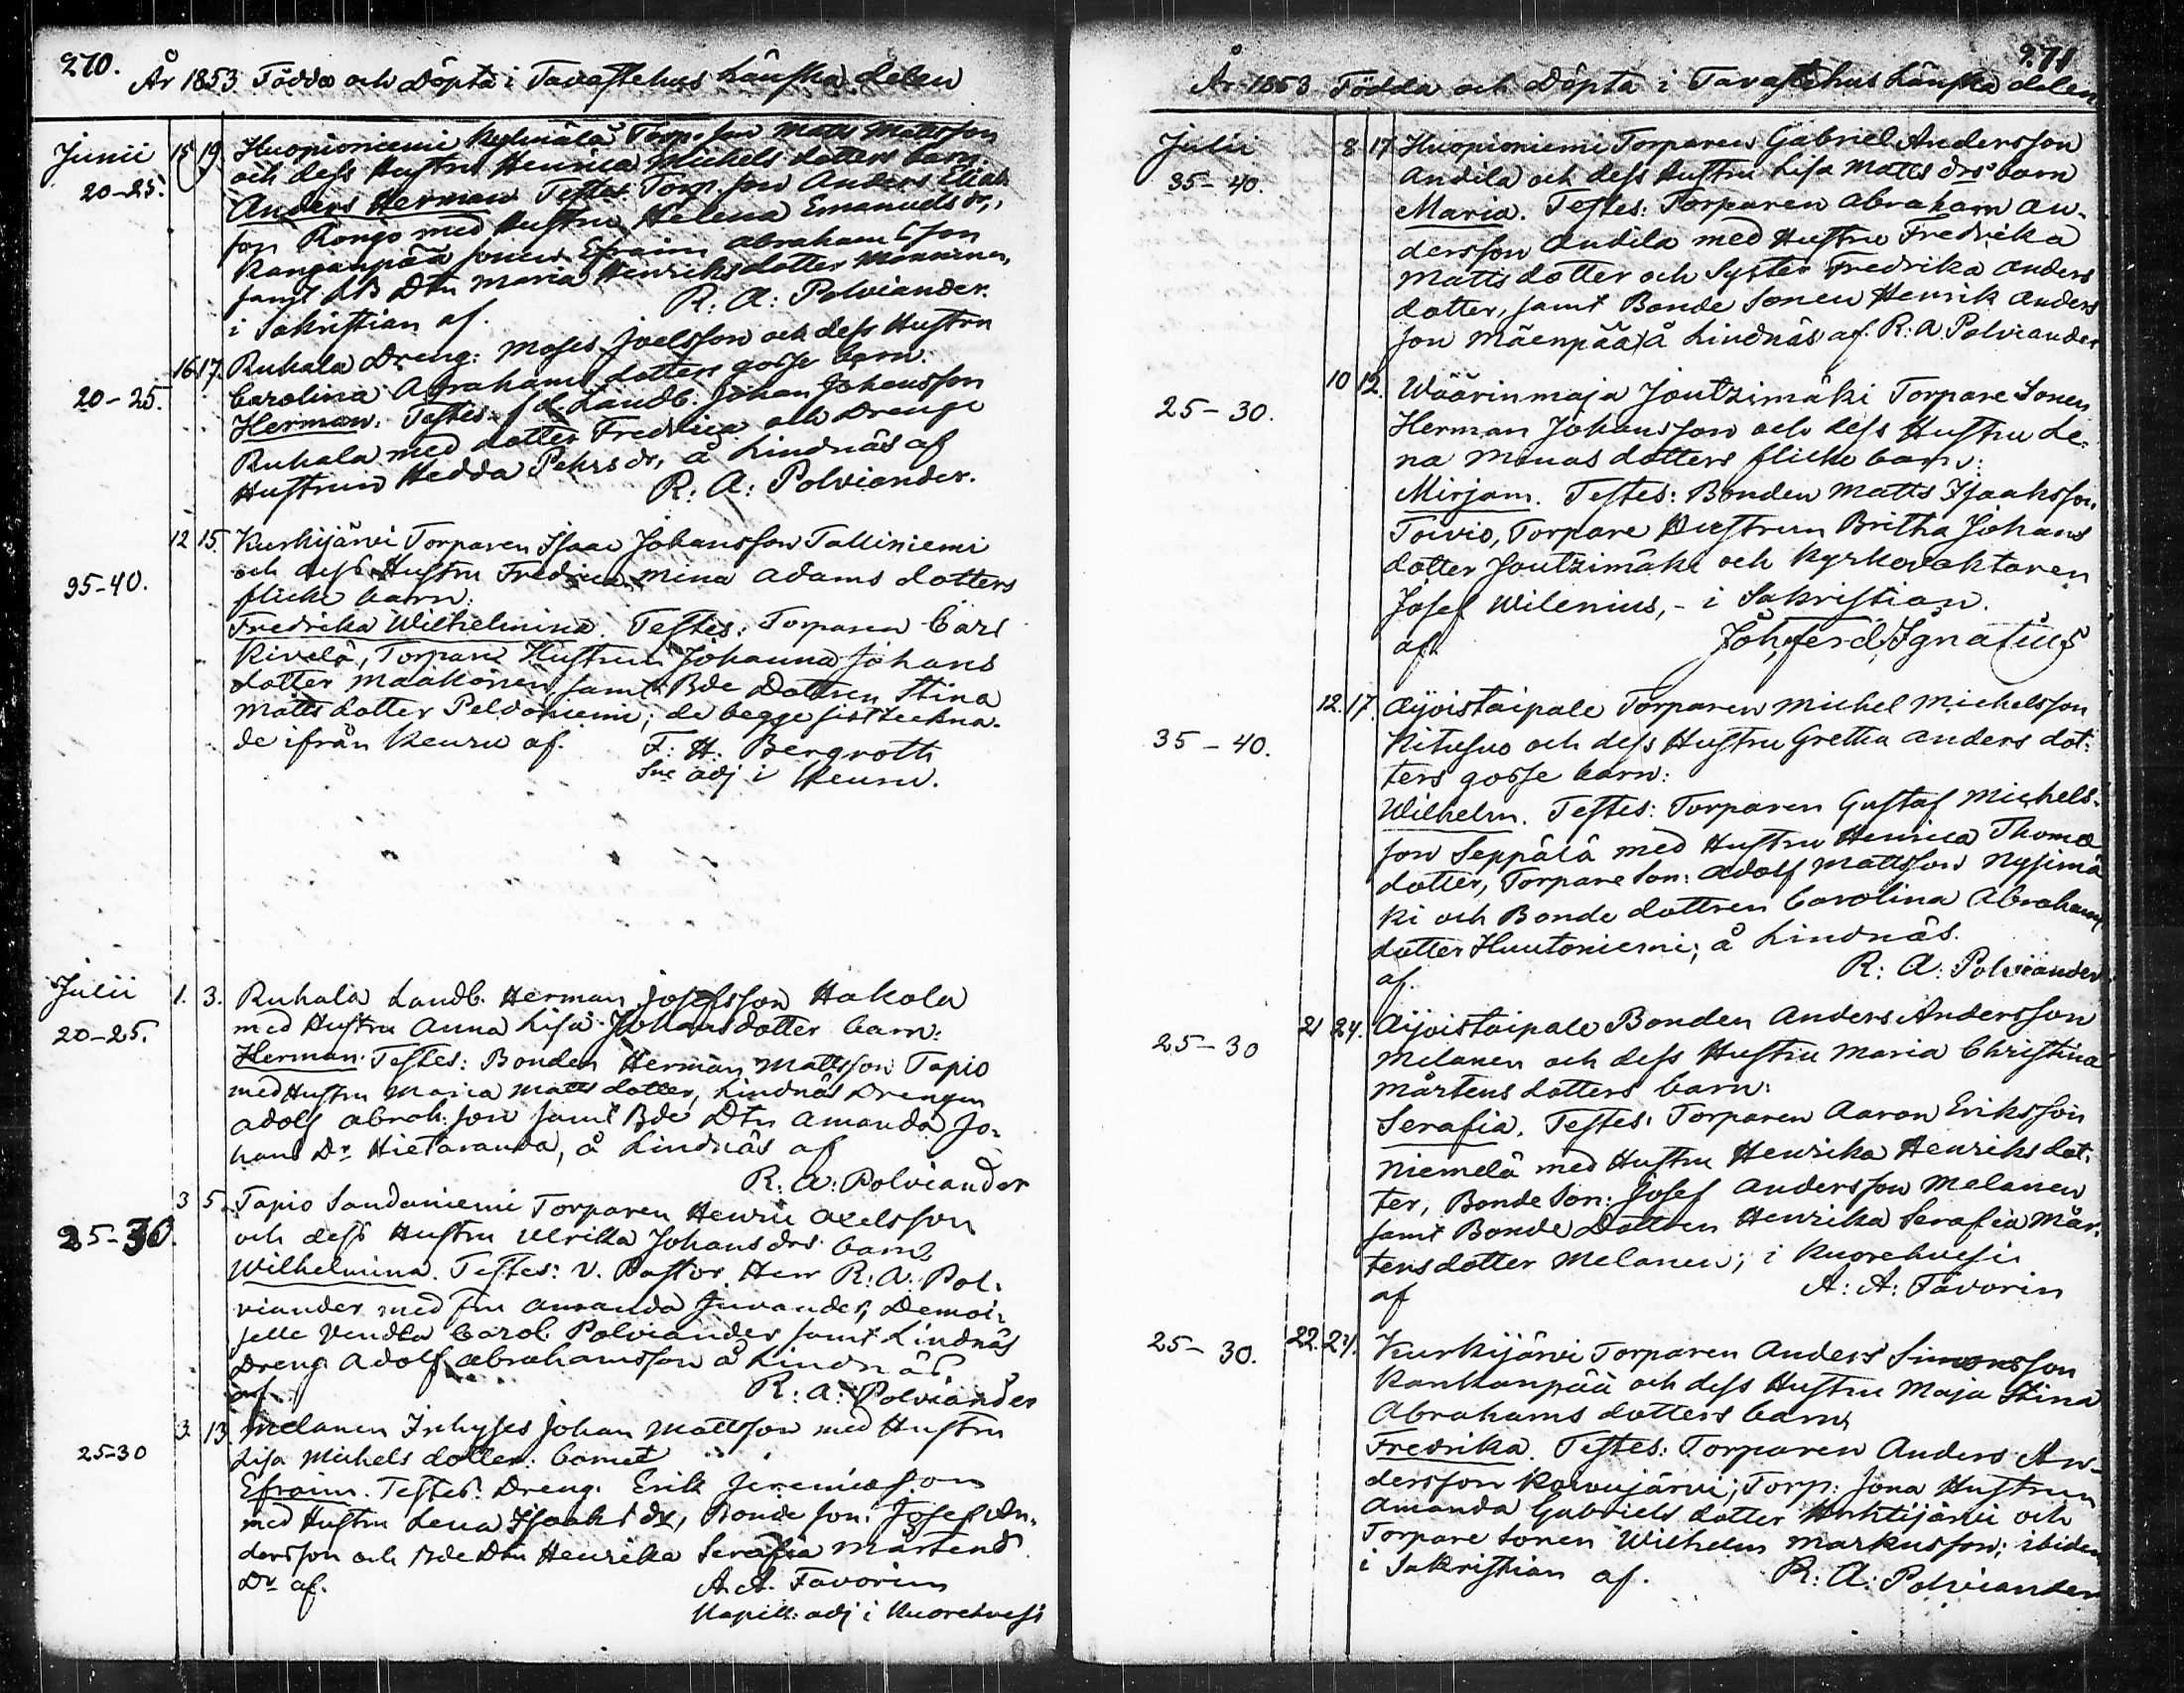 270.
År 1853 Födda och Döpta i Tavastehus Länska delen
Junii 15 19. Huopioniemi Kylmälä Torp. son Matts Mattsson
20-25. och dess Hustru Henrica Michels dotters barn.
Anders Herman Testes: Torp. son Anders Eliah
son Rongo med Hustru Helena Emanuels dr,
Kangaspää sonen Efraim Abraham son
samt Bd Dtn Maria Henriks dotter Manninen,
i Sakristian af. R: A: Polviander.
20-25. 16 17. Ruhala Dreng: Moses Joelsson och dess Hustru
Carolina Abrahams dotters gosse barn.
Herman. Testes: Landb. Johan Johansson
Ruhala med dotter Fredrica och Drenge
Hustrun Hedda Pehrs dr, å Lindnäs af
R: A: Polviander.
12 15. Kurkijärvi Torparen Isaac Johansson Talliniemi
35-40. och dess Hustru Fredrica Mina Adams dotters
flicke barn:
Fredrika Wilhelmina. Testes: Torparen Carl
Kivelä, Torpare Hustrun Johanna Johans
dotter Maakonen, samt Bde Dottren Stina
Matts dotter Peldoniemi; de begge sistteckna-
de ifrån Keuru af. F: H. Bergroth
Sne adj i Keuru.
Julii 1. 3. Ruhala Landb. Herman Josefsson Hakola
20-25. med Hustru Anna Lisa Johans dotter barn:
Herman. Testes: Bonden Herman Mattsson Tapio
med Hustru Maria Matts dotter, Lindnäs Drengen
Adolf Abrah. son samt Bde Dtn Amanda Jo-
hans Dr Hietaranda, å Lindnäs af
R: A: Polviander
3 5. Tapio Sandaniemi Torparen Henric Axelsson
25-30. och dess Hustru Ulrika Johans drs barn
Wilhelmina. Testes: V. Pastor Herr R: A: Pol-
viander med fru Amanda Juvander, Demoi-
selle Vendla Carol. Polviander samt Lindnäs
Dreng Adolf Abrahamsson å Lindnäs
af. R: A: Polviander
3. 13. Melanen Inhyses Johan Mattsson med Hustru
25-30 Lisa Michels dotter: barnet
Efraim. Testes: Dreng. Erik Jeremiasson
med Hustru Lena Isaaks dr, Bonde son: Josef An-
dersson och Bde Dtn Henrika Serafia Mårtens
Dr af. A. A. Favorin
Kapell: adj i Kuorehvesi
271
År 1853 Födda och Döpta i Tavastehus Länska delen
Julii 8 17 Huopioniemi Torparen Gabriel Andersson
35-40. Andila och dess Hustru Lisa Matts drs barn
Maria. Testes: Torparen Abraham An-
dersson Andila med Hustru Fredrika
Matts dotter och Syster Fredrika Anders
dotter, samt Bonde Sonen Henrik Anders
son Mäenpää å Lindnäs af. R: A. Polviander
10 12. Wäärinmaja Joutzimäki Torpare Sonen
25-30. Herman Johansson och dess Hustru Le-
na Monas dotters flicke barn:
Mirjam. Testes: Bonden Matts Isaaksson
Toivio, Torpare Hustrun Britha Johans
dotter Joutzimäki och Kyrkovaktaren
Josef Wilenius, - i Sakristian.
af. Joh, Ferd, Ignatius
12. 17. Äijoistaipale Torparen Michel Michelsson
35-40. Kitusuo och dess Hustru Gretha Anders dot-
ters gosse barn:
Wilhelm. Testes: Torparen Gustaf Michels-
son Seppälä med Hustru Henrica Thomæ
dotter, Torpare Son: Adolf Mattsson Nysimä
ki och Bonde dottren Carolina Abrahams
dotter Huutoniemi; å Lindnäs.
af. R: A: Polviander
21 24. Äijoistaipale Bonden Anders Andersson
25-30 Melanen och dess Hustru Maria Christina
Mårtens dotters barn:
Serafia. Testes: Torparen Aaron Eriksson
Niemelä med Hustru Henrika Henriks dot-
ter, Bonde Son: Josef Andersson Melanen
samt Bonde Dottren Henrika Serafia Mår-
tens dotter Melanen; i Kuorehvesi
af A: A: Favorin
22. 24. Kurkijärvi Torparen Anders Simonsson
25-30. Kankanpää och dess Hustru Maja Stina
Abrahams dotters barn
Fredrika. Testes: Torparen Anders An-
dersson Koivujärvi; Torp: Sona Hustrun
Amanda Gabriels dotter Huhtijärvi och
Torpare sonen Wilhelm Markusson; ibidem
i Sakristian af. R: A: Polviander